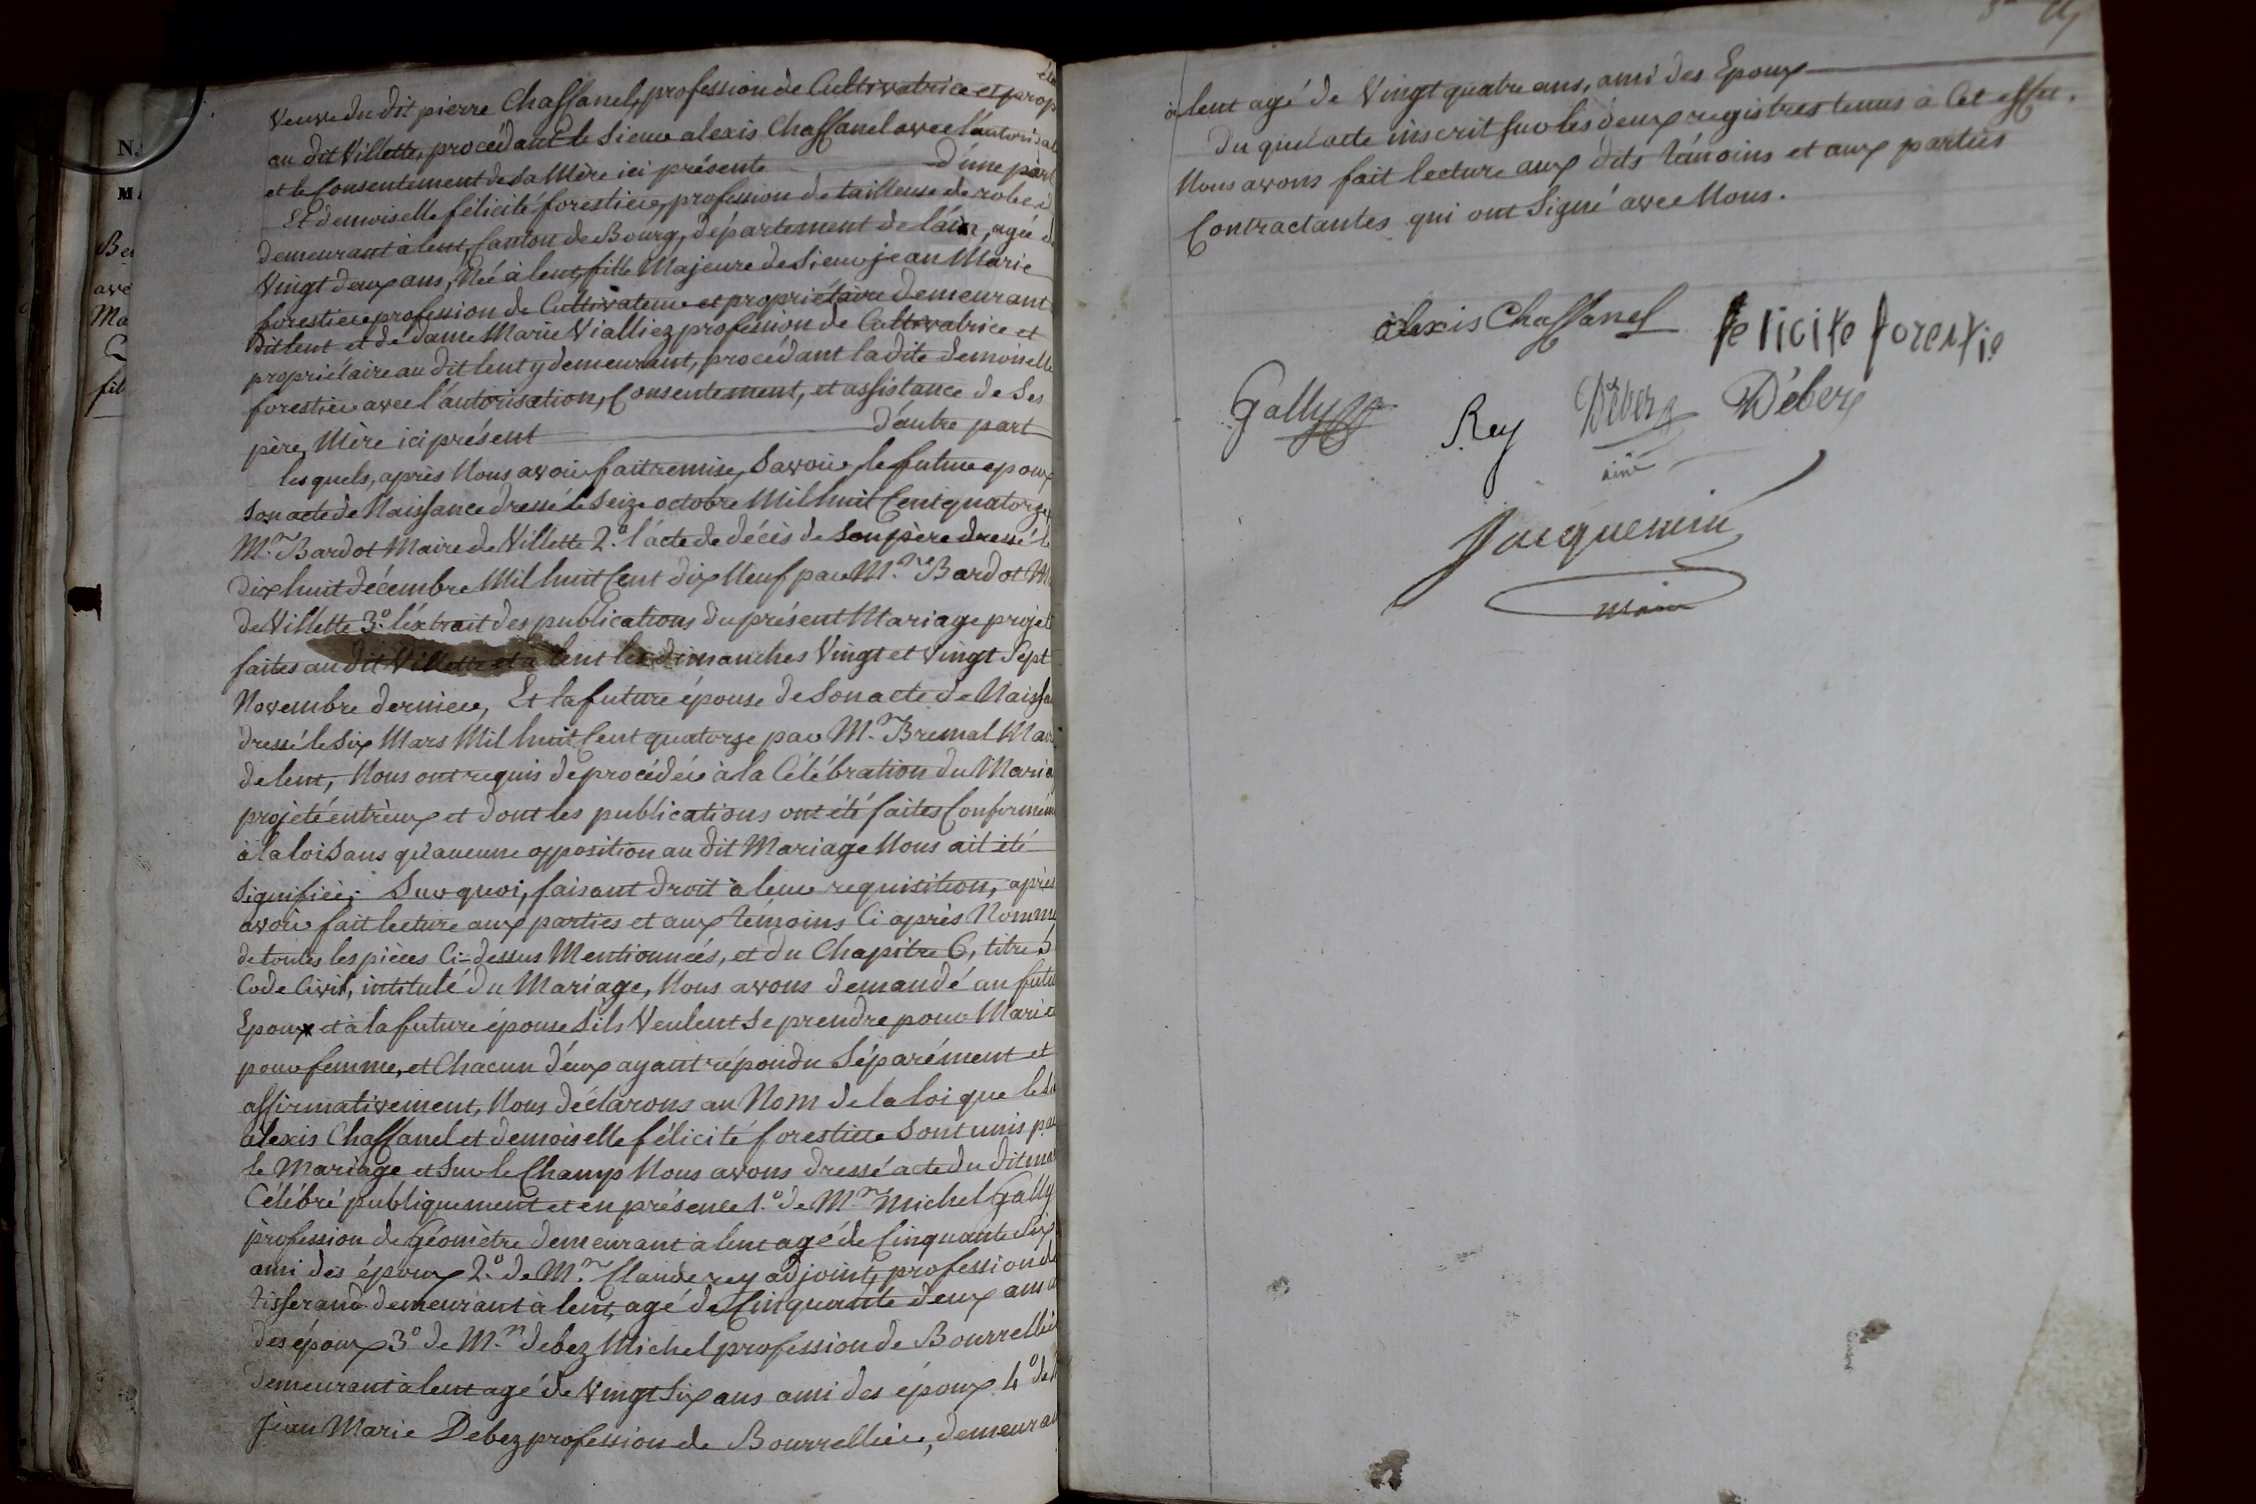 N.
MA
Be
ave
Ma
fil
Veuve du dit pierre Chassanel, profession de Cultivatrice et prop
au dit Villette, procédant le Sieur alexis Chassanel avec l'autorisat
et le Consentement de Sa Mère ici présente d'une part
Et demoiselle félicité forestier, profession de tailleuse de robe
demeurant à lent, Canton de Bourg, département de l'ain, agée d
Vingt deux ans, Née à lent, fille Majeure de Sieur jean Marie
forestier profession de Cultivateur et propriétaire demeurant
dit lent et de dame Marie Vialliez profession de Cultivatrice et
propriétaire au dit lent y demeurant, procédant la dite demoiselle
forestier avec l'autorisation, Consentement, et assistance de Ses
père, Mère ici présent d'autre part
les quels, après Nous avoir fait remise, Savoir, le futur epoux
Son acte de Naissance dressé le Seize octobre Mil huit Cent quatorze
M.r Bardot Maire de Villette 2.o l'acte de décès de Son père dressé le
dix huit décembre Mil huit Cent dix Neuf par M.r Bardot M
de Villette 3.o l'éxtrait des publications du présent Mariage projet
faites au dit Villette et à lent les dimanches Vingt et Vingt Sept
Novembre dernier, Et la future épouse de Son acte de Naissa
dressé le Six Mars Mil huit Cent quatorze par M.r Bremal Mai
de lent, Nous ont requis de procéder à la Célébration du Maria
projeté entr'eux et dont les publications ont été faites Conformém
à la loi Sans qu'aucune opposition au dit Mariage Nous ait été
Signifiée; Sur quoi, faisant droit à leur requisition, après
avoir fait lecture aux parties et aux témoins Ci après Nommé
de toutes les pièces Ci-dessus Mentionnées, et du Chapitre 6, titre 5
Code Civil, intitulé du Mariage, Nous avons demandé au futu
Epoux et à la future épouse S'ils Veulent Se prendre pour Mari e
pour femme, et Chacun d'eux ayant répondu Séparément et
affirmativement, Nous déclarons au Nom de la loi que le S
alexis Chassanel et demoiselle félicité forestier Sont unis par
le Mariage et Sur le Champ Nous avons dressé acte du dit ma
Célébré publiquement et en présence 1.o de M.r Michel Gally
profession de Géomètre demeurant à lent agé de Cinquante Six
ami des époux 2.o de M.r Claude rey adjoint, profession de
tisserand demeurant à lent, agé de Cinquante deux ans a
des époux 3.o de M.r debez Michel profession de Bourrellie
demeurant à lent agé de Vingt Six ans ami des époux 4.o de
Jean Marie Debez profession de Bourrellier, demeuran
à lent agé de Vingt quatre ans, ami des Epoux
Du quel acte inscrit Sur les deux registres tenus à Cet effet.
Nous avons fait lecture aux dits témoins et aux parties
Contractantes qui ont Signé avec Nous.
alexis Chassanel felicite forestie
Gally Rey Débez Débez
ainé
Jacquemin
Maire